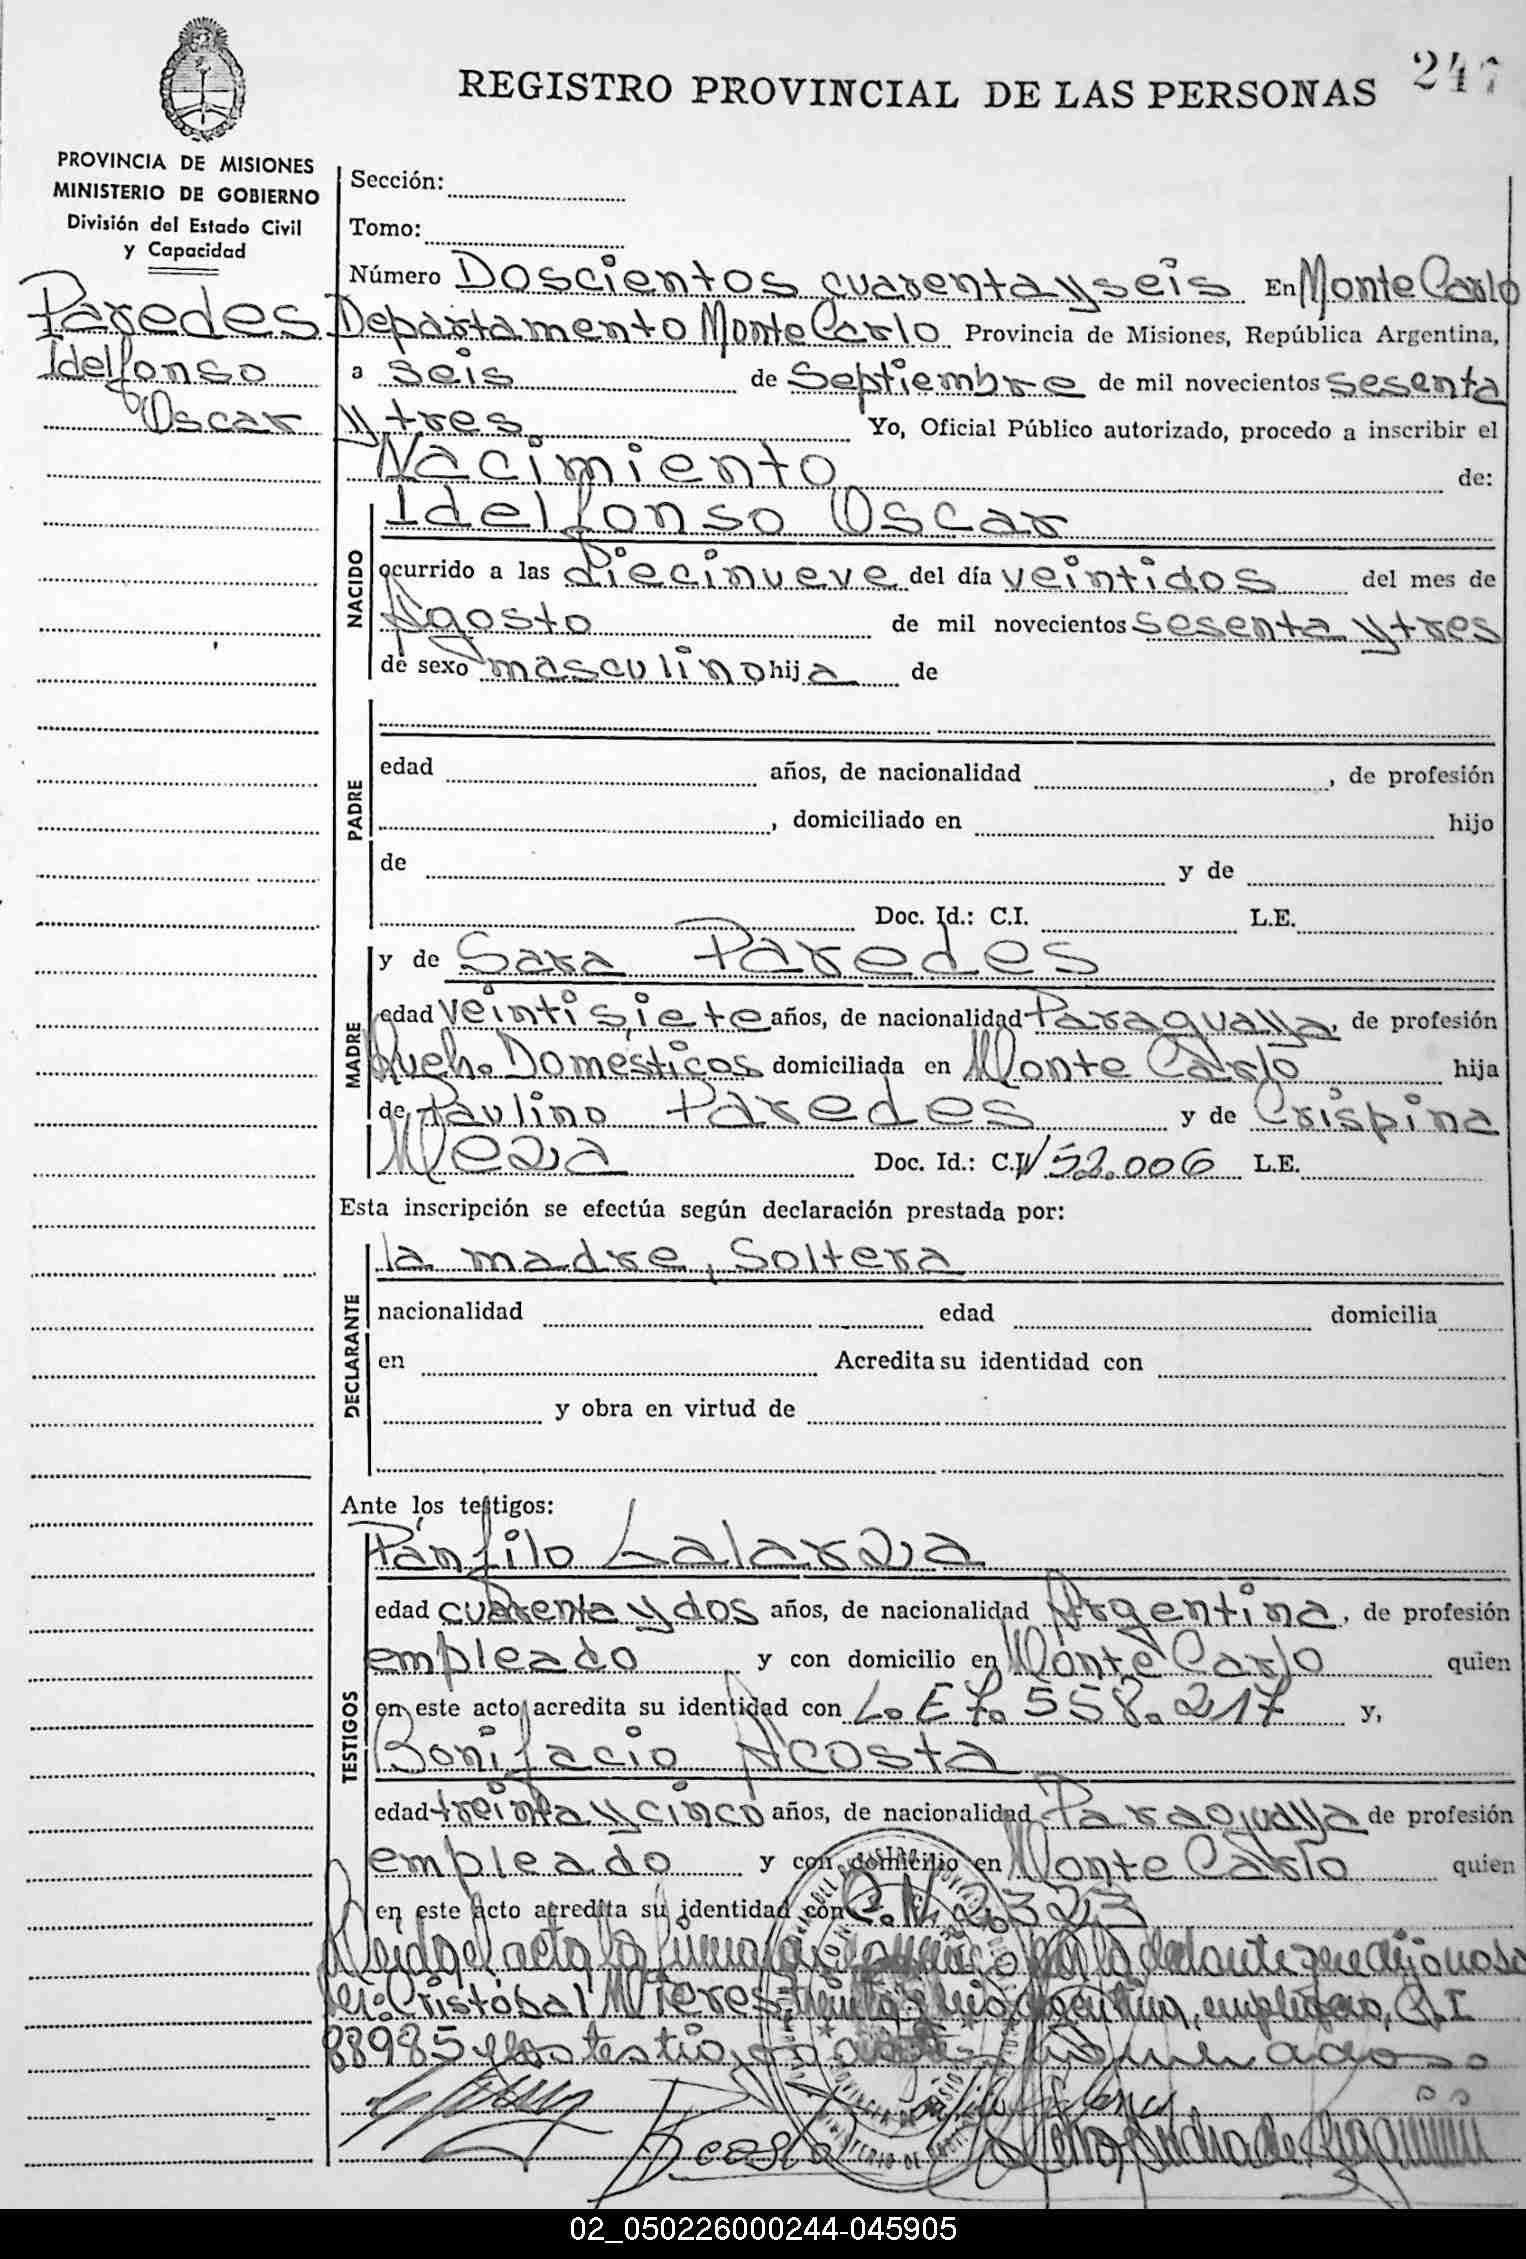 REGISTRO PROVINCIAL DE LAS PERSONAS
PROVINCIA DE MISIONES
MINISTERIO DE GOBIERNO
División del Estado Civil
y Capacidad
Paredes
Idelfonso
Oscar
Sección:
Tomo:
Número Doscientos cuarenta y seis En Monte Carlo
Departamento Monte Carlo Provincia de Misiones, República Argentina,
a Seis de Septiembre de mil novecientos sesenta
y tres Yo, Oficial Público autorizado, procedo a inscribir el
Nacimiento de:
NACIDO
Idelfonso Oscar
ocurrido a las diecinueve del día veintidos del mes de
Agosto de mil novecientos sesenta y tres
de sexo masculino hija de
PADRE
edad años, de nacionalidad , de profesión
, domiciliado en hijo
de y de
Doc. Id.: C.I. L.E.
MADRE
y de Sara Paredes
edad veintisiete años, de nacionalidad Paraguaya, de profesión
Queh. Domésticos domiciliada en Monte Carlo hija
de Paulino Paredes y de Crispina
Meza Doc. Id.: C.I 52.006 L.E.
Esta inscripción se efectúa según declaración prestada por:
DECLARANTE
la madre, Soltera
nacionalidad edad domicilia
en Acredita su identidad con
y obra en virtud de
Ante los testigos:
TESTIGOS
Pánfilo Lalarza
edad cuarenta y dos años, de nacionalidad Argentina, de profesión
empleado y con domicilio en Monte Carlo quien
en este acto acredita su identidad con L. E 7. 558. 217 y,
Bonifacio Acosta
edad treinta y cinco años, de nacionalidad Paraguaya de profesión
empleado y con domicilio en Monte Carlo quien
en este acto acredita su identidad con C. N. 2.323
Leida el acta la firma por la declarante que dijo no sa
ber: Cristóbal Mieres argentino, empleado, C. I
88985 y los testigos
02_050226000244-045905